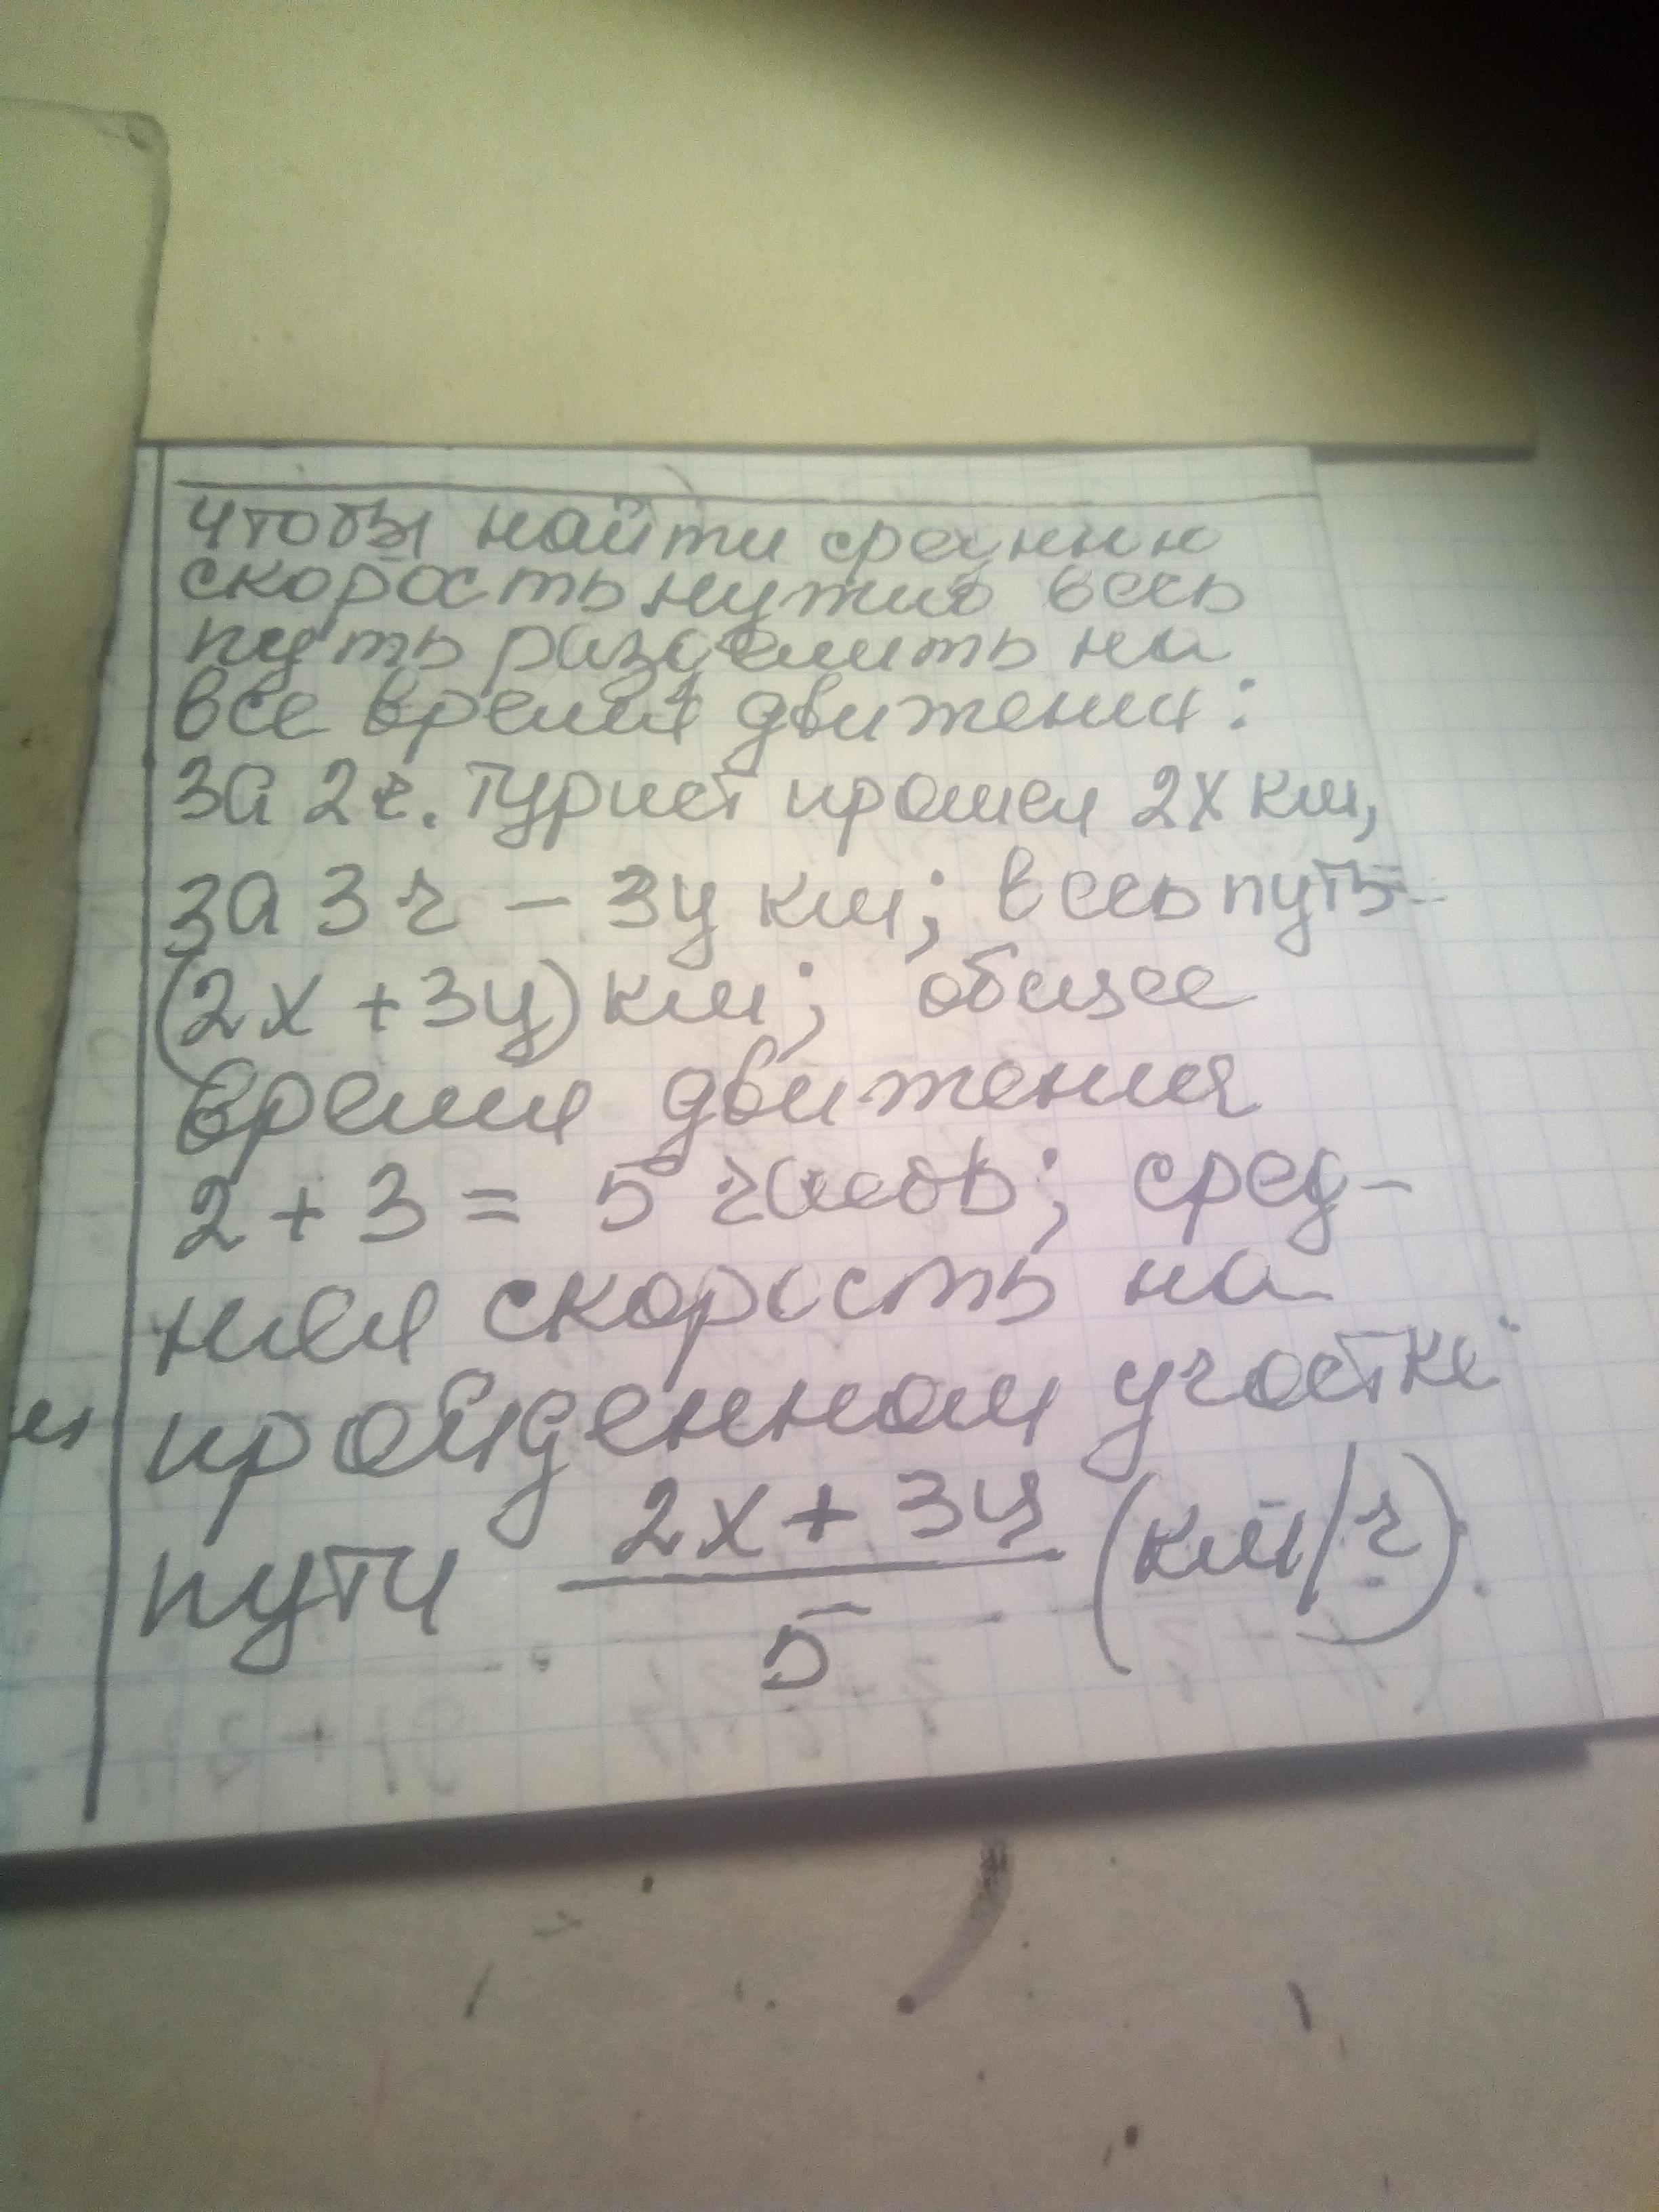 чтобы найти среднюю
скорость нужно весь
путь разделить на
все время движения:
за 2ч. турист прошел 2x км,
за 3 ч - 3y км; весь путь -
(2x + 3y) км; общее
время движения
2 + 3 = 5 часов; сред-
няя скорость на
пройденном участке
пути 2x + 3y (км/ч).
5